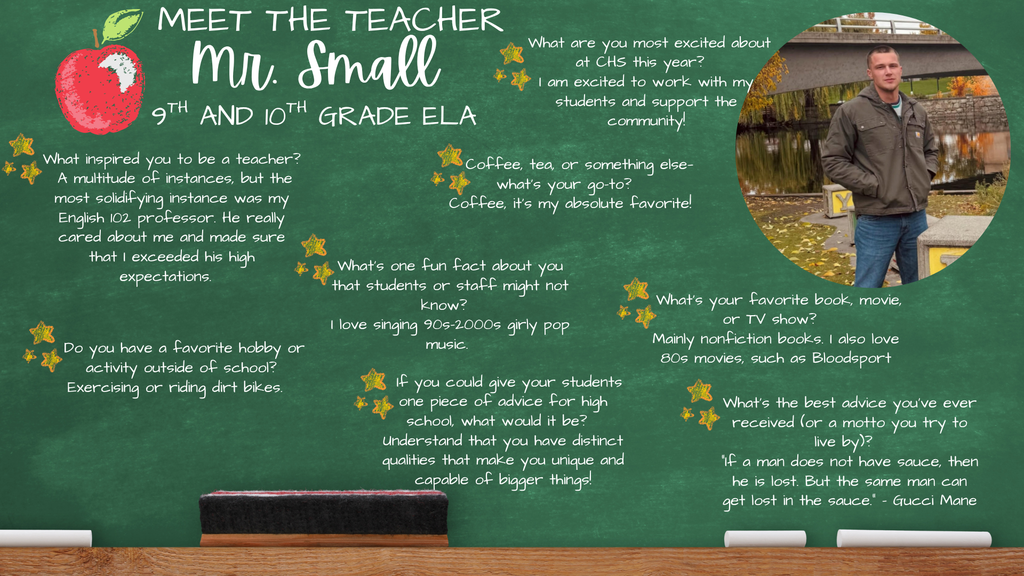 MEET THE TEACHER
Mr. Small
9TH AND 10TH GRADE ELA
What are you most excited about
at CHS this year?
I am excited to work with my
students and support the
community!
What inspired you to be a teacher?
A multitude of instances, but the
most solidifying instance was my
English 102 professor. He really
cared about me and made sure
that I exceeded his high
expectations.
Coffee, tea, or something else-
what's your go-to?
Coffee, it's my absolute favorite!
What's one fun fact about you
that students or staff might not
know?
I love singing 90s-2000s girly pop
music.
What's your favorite book, movie,
or TV show?
Mainly nonfiction books. I also love
80s movies, such as Bloodsport
Do you have a favorite hobby or
activity outside of school?
Exercising or riding dirt bikes.
If you could give your students
one piece of advice for high
school, what would it be?
Understand that you have distinct
qualities that make you unique and
capable of bigger things!
What's the best advice you've ever
received (or a motto you try to
live by)?
"If a man does not have sauce, then
he is lost. But the same man can
get lost in the sauce." - Gucci Mane